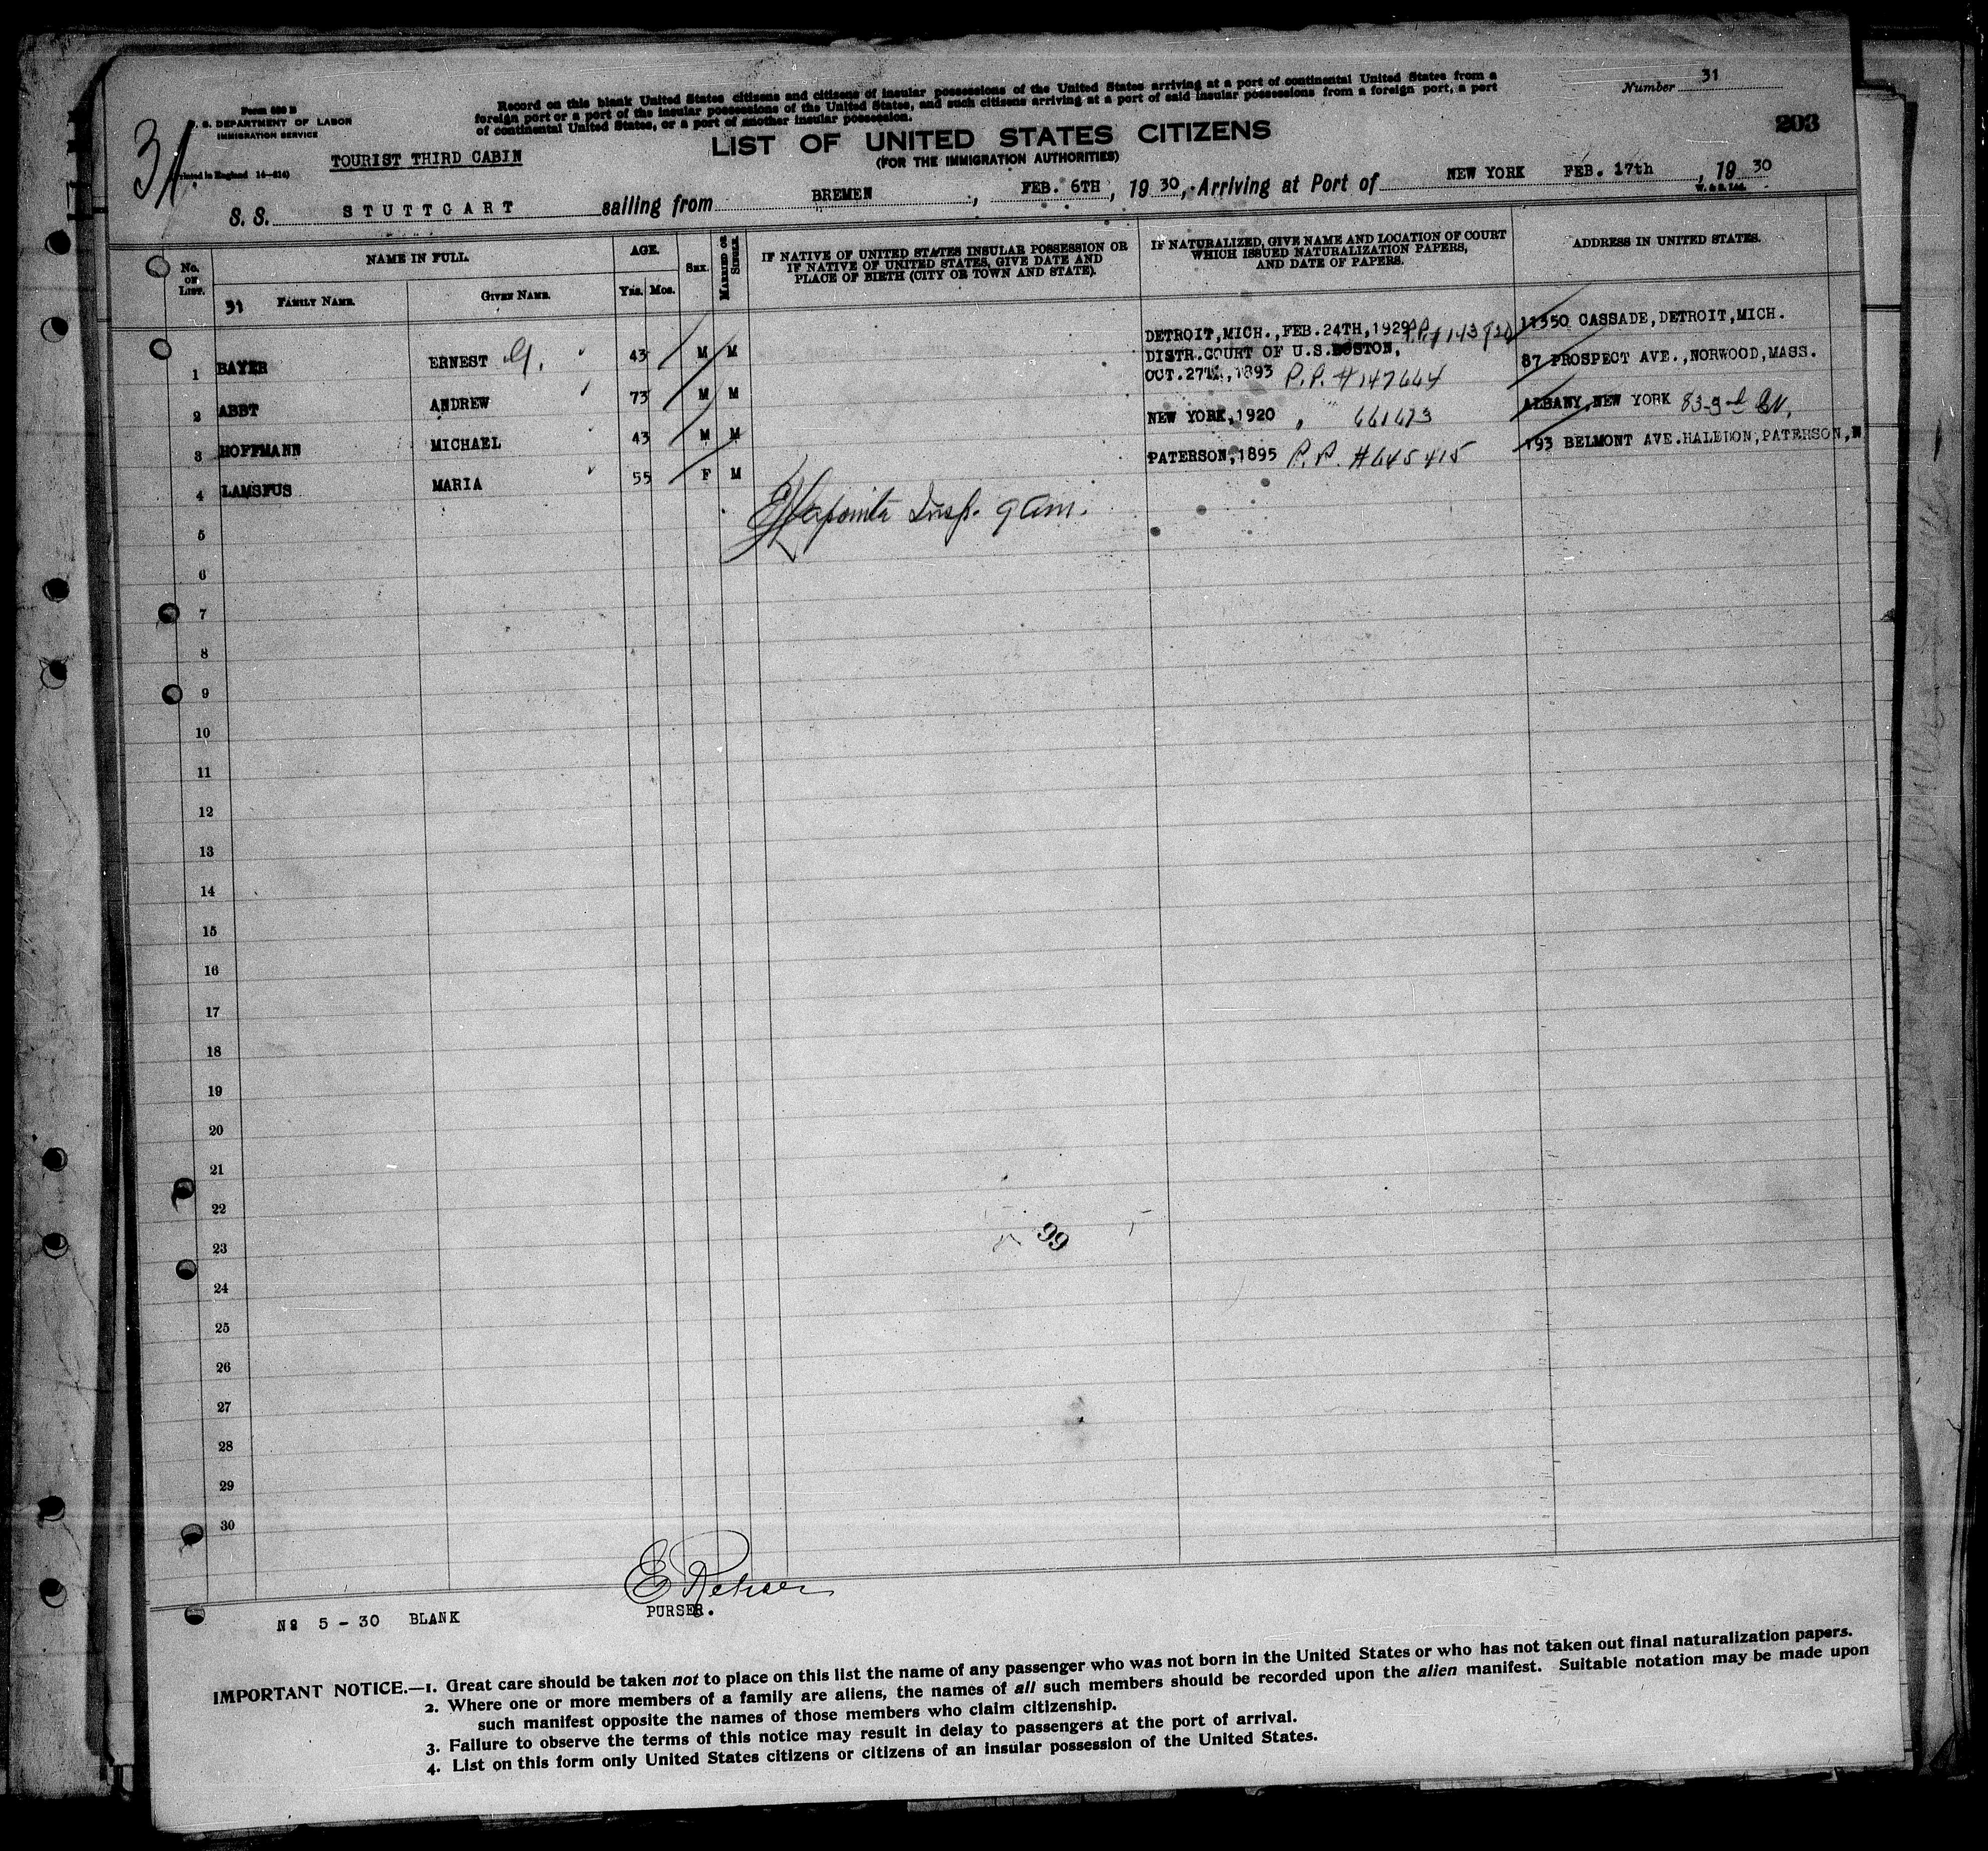 Number 31
Record on this blank United States citizens and citizens of insular possessions of the United States arriving at a port of continental United States from a
foreign port or a port of the insular possessions of the United States, and such citizens arriving at a port of said insular possessions from a foreign port, a port
of continental United States, or a port of another insular possession.
Form 630 B
U. S. DEPARTMENT OF LABOR
IMMIGRATION SERVICE
31
203
LIST OF UNITED STATES CITIZENS
(FOR THE IMMIGRATION AUTHORITIES)
TOURIST THIRD CABIN
(Printed in England 14-814)
S. S. STUTTGART sailing from BREMEN, FEB. 6TH, 1930, Arriving at Port of NEW YORK FEB. 17th, 1930
W. & S. Ltd.
No. ON LIST. NAME IN FULL. AGE. SEX. MARRIED OR SINGLE. IF NATIVE OF UNITED STATES INSULAR POSSESSION OR IF NATIVE OF UNITED STATES, GIVE DATE AND PLACE OF BIRTH (CITY OR TOWN AND STATE). IF NATURALIZED, GIVE NAME AND LOCATION OF COURT WHICH ISSUED NATURALIZATION PAPERS, AND DATE OF PAPERS. ADDRESS IN UNITED STATES.
31 FAMILY NAME. GIVEN NAME. YRS. MOS.
1 BAYER ERNEST G. 43 M M DETROIT,MICH.,FEB.24TH,1929 P.P.# 11350 CASSADE,DETROIT,MICH.
2 ABBT ANDREW 73 M M DISTR.COURT OF U.S.BOSTON, OCT.27TH,1893 P.P. #147664 87 PROSPECT AVE.,NORWOOD,MASS.
3 HOFFMANN MICHAEL 43 M M NEW YORK,1920 " 661673 ALBANY,NEW YORK 83-3rd
4 LAMSFUS MARIA 55 F M PATERSON,1895 P.P. #645415 193 BELMONT AVE.HALEDON,PATERSON,N
Insp. 9 am.
5
6
7
8
9
10
11
12
13
14
15
16
17
18
19
20
21
22
23
24
25
26
27
28
29
30
99
E
PURSER.
No 5 - 30 BLANK
IMPORTANT NOTICE.—1. Great care should be taken not to place on this list the name of any passenger who was not born in the United States or who has not taken out final naturalization papers.
2. Where one or more members of a family are aliens, the names of all such members should be recorded upon the alien manifest. Suitable notation may be made upon
such manifest opposite the names of those members who claim citizenship.
3. Failure to observe the terms of this notice may result in delay to passengers at the port of arrival.
4. List on this form only United States citizens or citizens of an insular possession of the United States.